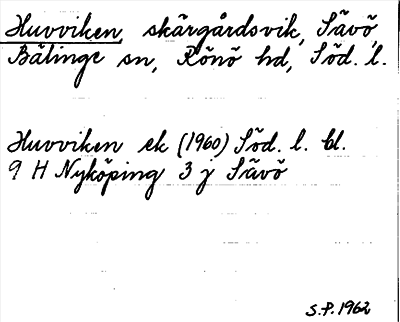 Huvviken, skärgårdsvik, Sävö,
Bälinge sn, Rönö hd, Söd. l.
Huvviken ek (1960) Söd. l. bl.
9 H Nyköping 3 j Sävö
S.P. 1962